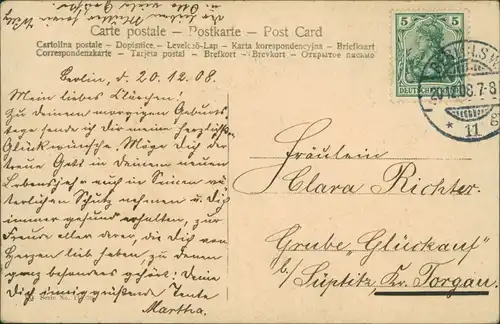 Carte postale – Postkarte – Post Card
Cartolina postale – Dopisnice. – Levelező-Lap – Karta korespondencyjna – Briefkaart
Correspondenzkarte – Tarjeta postal – Brefkort – Brevkort – Открытое письмо
5 5
DEUTSCHES REICH
20.12.08.7-8
* 11
Berlin, d. 20.12.08.
Mein liebes Klärchen!
Zu deinem morgigen Geburts-
tage sende ich Dir meine herzlichsten
Glückwünsche. Möge Dich der
treue Gott in Deinem neuen
Lebensjahre auch in Seinen vä-
terlichen Schutz nehmen u. Dich
immer gesund erhalten, zur
Freude aller derer, die Dich von
Herzen lieb haben, zu denen
ganz besonders gehört: Deine
Dich innig grüßende Tante
Martha.
Fräulein
Clara Richter.
Grube „Glückauf"
b/ Süptitz, Kr. Torgau.
Serie No.